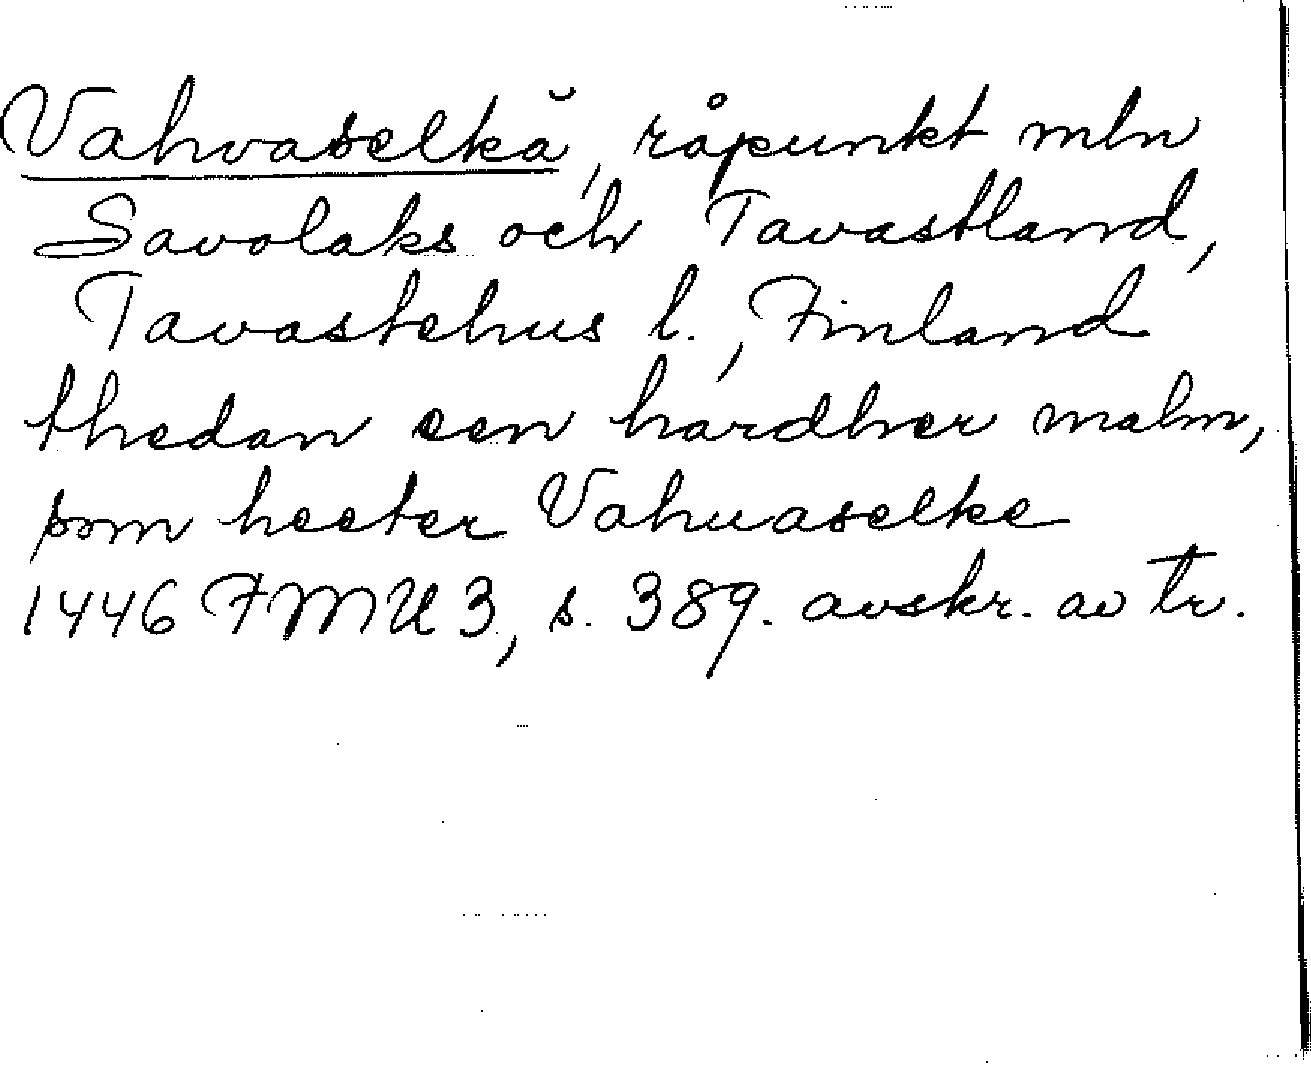 Vahvaselkä, råpunkt mln
Savolaks och Tavastland,
Tavastehus l., Finland
thedan een hardher malm,
som heeter Vahuaselke
1446 FMU 3, s. 389. avskr. av tr.